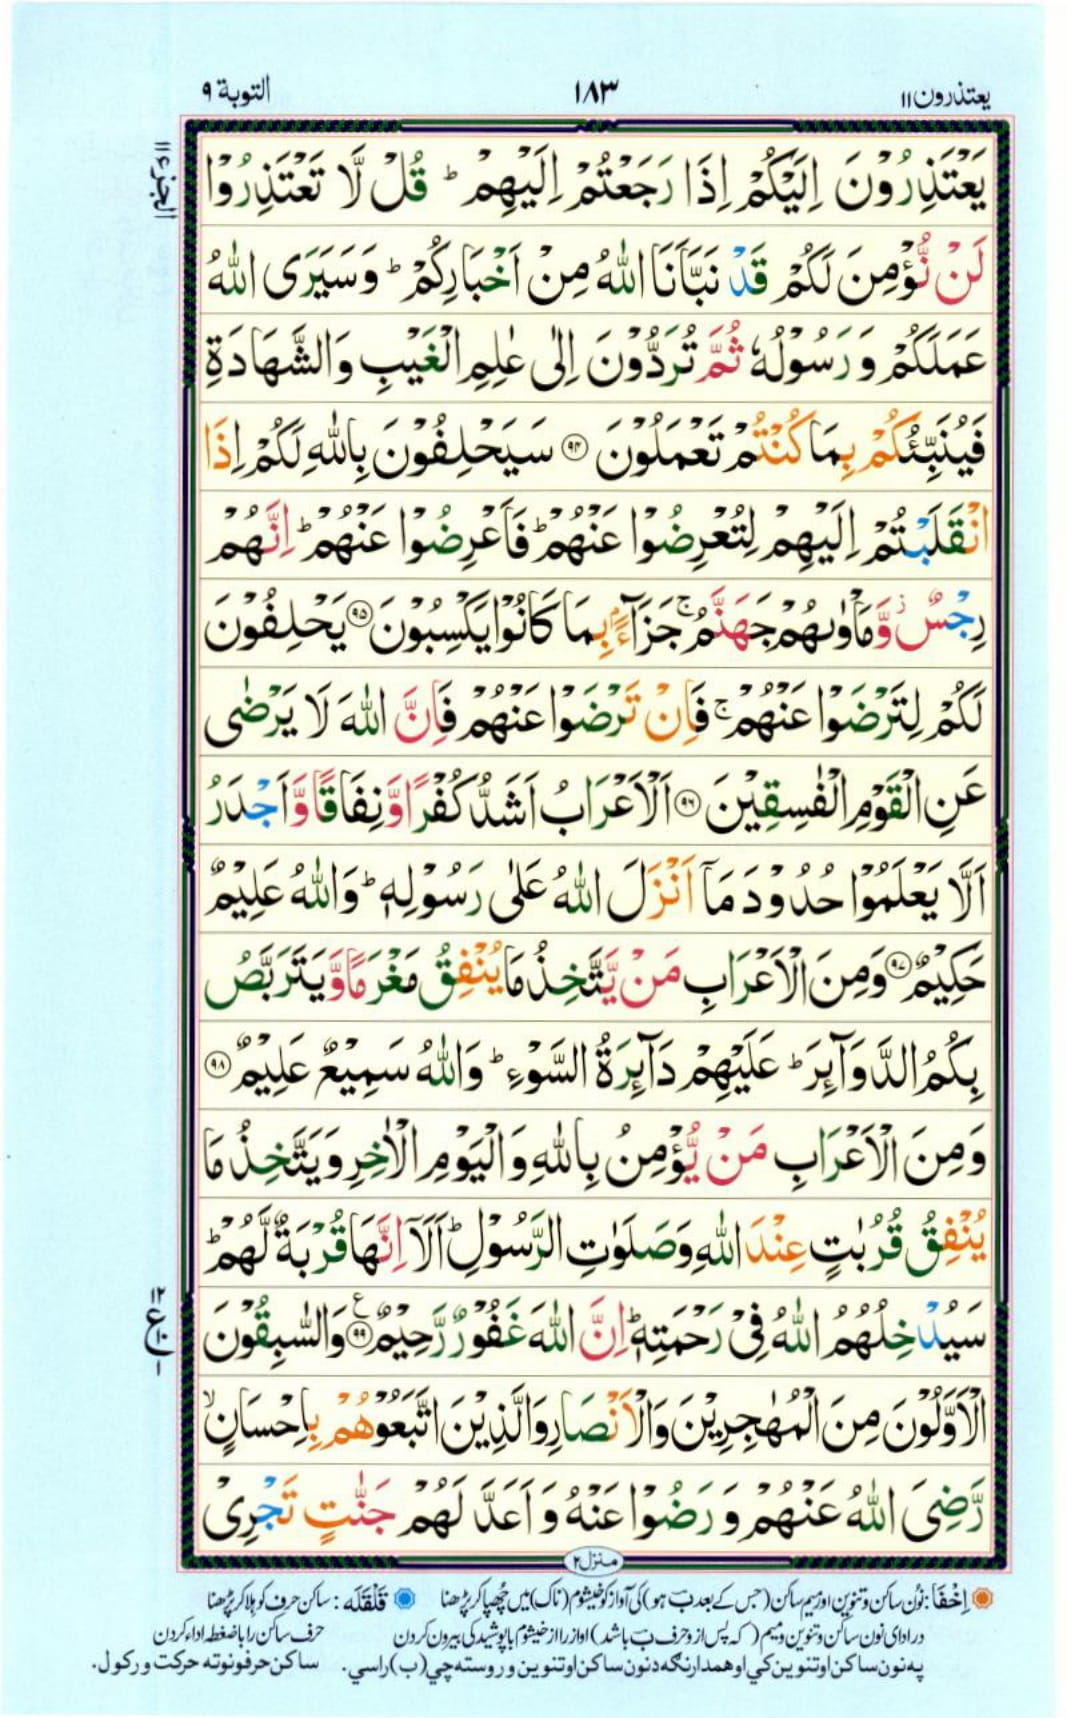 يعتذرون ۱۱
۱۸۳
التوبة ۹
الجزء ۱۱
يَعْتَذِرُوْنَ اِلَيْكُمْ اِذَا رَجَعْتُمْ اِلَيْهِمْ ؕ قُلْ لَّا تَعْتَذِرُوْا
لَنْ نُّؤْمِنَ لَكُمْ قَدْ نَبَّاَنَا اللّٰهُ مِنْ اَخْبَارِكُمْ ؕ وَسَيَرَى اللّٰهُ
عَمَلَكُمْ وَرَسُوْلُهٗ ثُمَّ تُرَدُّوْنَ اِلٰى عٰلِمِ الْغَيْبِ وَالشَّهَادَةِ
فَيُنَبِّئُكُمْ بِمَا كُنْتُمْ تَعْمَلُوْنَ ۹۴ سَيَحْلِفُوْنَ بِاللّٰهِ لَكُمْ اِذَا
انْقَلَبْتُمْ اِلَيْهِمْ لِتُعْرِضُوْا عَنْهُمْ ؕ فَاَعْرِضُوْا عَنْهُمْ ؕ اِنَّهُمْ
رِجْسٌ ز وَّمَاْوٰىهُمْ جَهَنَّمُ ۚ جَزَآءًۢ بِمَا كَانُوْا يَكْسِبُوْنَ ۹۵ يَحْلِفُوْنَ
لَكُمْ لِتَرْضَوْا عَنْهُمْ ۚ فَاِنْ تَرْضَوْا عَنْهُمْ فَاِنَّ اللّٰهَ لَا يَرْضٰى
عَنِ الْقَوْمِ الْفٰسِقِيْنَ ۹۶ اَلْاَعْرَابُ اَشَدُّ كُفْرًا وَّنِفَاقًا وَّاَجْدَرُ
اَلَّا يَعْلَمُوْا حُدُوْدَ مَآ اَنْزَلَ اللّٰهُ عَلٰى رَسُوْلِهٖ ؕ وَاللّٰهُ عَلِيْمٌ
حَكِيْمٌ ۹۷ وَمِنَ الْاَعْرَابِ مَنْ يَّتَّخِذُ مَا يُنْفِقُ مَغْرَمًا وَّيَتَرَبَّصُ
بِكُمُ الدَّوَآئِرَ ؕ عَلَيْهِمْ دَآئِرَةُ السَّوْءِ ؕ وَاللّٰهُ سَمِيْعٌ عَلِيْمٌ ۹۸
وَمِنَ الْاَعْرَابِ مَنْ يُّؤْمِنُ بِاللّٰهِ وَالْيَوْمِ الْاٰخِرِ وَيَتَّخِذُ مَا
يُنْفِقُ قُرُبٰتٍ عِنْدَ اللّٰهِ وَصَلَوٰتِ الرَّسُوْلِ ؕ اَلَآ اِنَّهَا قُرْبَةٌ لَّهُمْ ؕ
سَيُدْخِلُهُمُ اللّٰهُ فِيْ رَحْمَتِهٖ ؕ اِنَّ اللّٰهَ غَفُوْرٌ رَّحِيْمٌ ۹۹ ع وَالسّٰبِقُوْنَ
۱۲ ع ۱۰ ۱
الْاَوَّلُوْنَ مِنَ الْمُهٰجِرِيْنَ وَالْاَنْصَارِ وَالَّذِيْنَ اتَّبَعُوْهُمْ بِاِحْسَانٍ ۙ
رَّضِيَ اللّٰهُ عَنْهُمْ وَرَضُوْا عَنْهُ وَاَعَدَّ لَهُمْ جَنّٰتٍ تَجْرِيْ
منزل ۲
اِخْفَا : نُون ساکن و تنوین اور میم ساکن (جس کے بعد ب ہو) کی آواز کو خیشوم (ناک) میں چُھپا کر پڑھنا قَلْقَلَه : ساکن حرف کو ہلا کر پڑھنا
در ادای نون ساکن و تنوین و میم (که پس از و حرف ب باشد) اواز را از خیشوم با پوشیدگی بیرون کردن حرف ساکن را با ضغطه اداء کردن
په نون ساکن او تنوین کي او همدارنگه د نون ساکن او تنوین وروسته چي (ب) راسي. ساکن حرفونو ته حرکت ورکول.